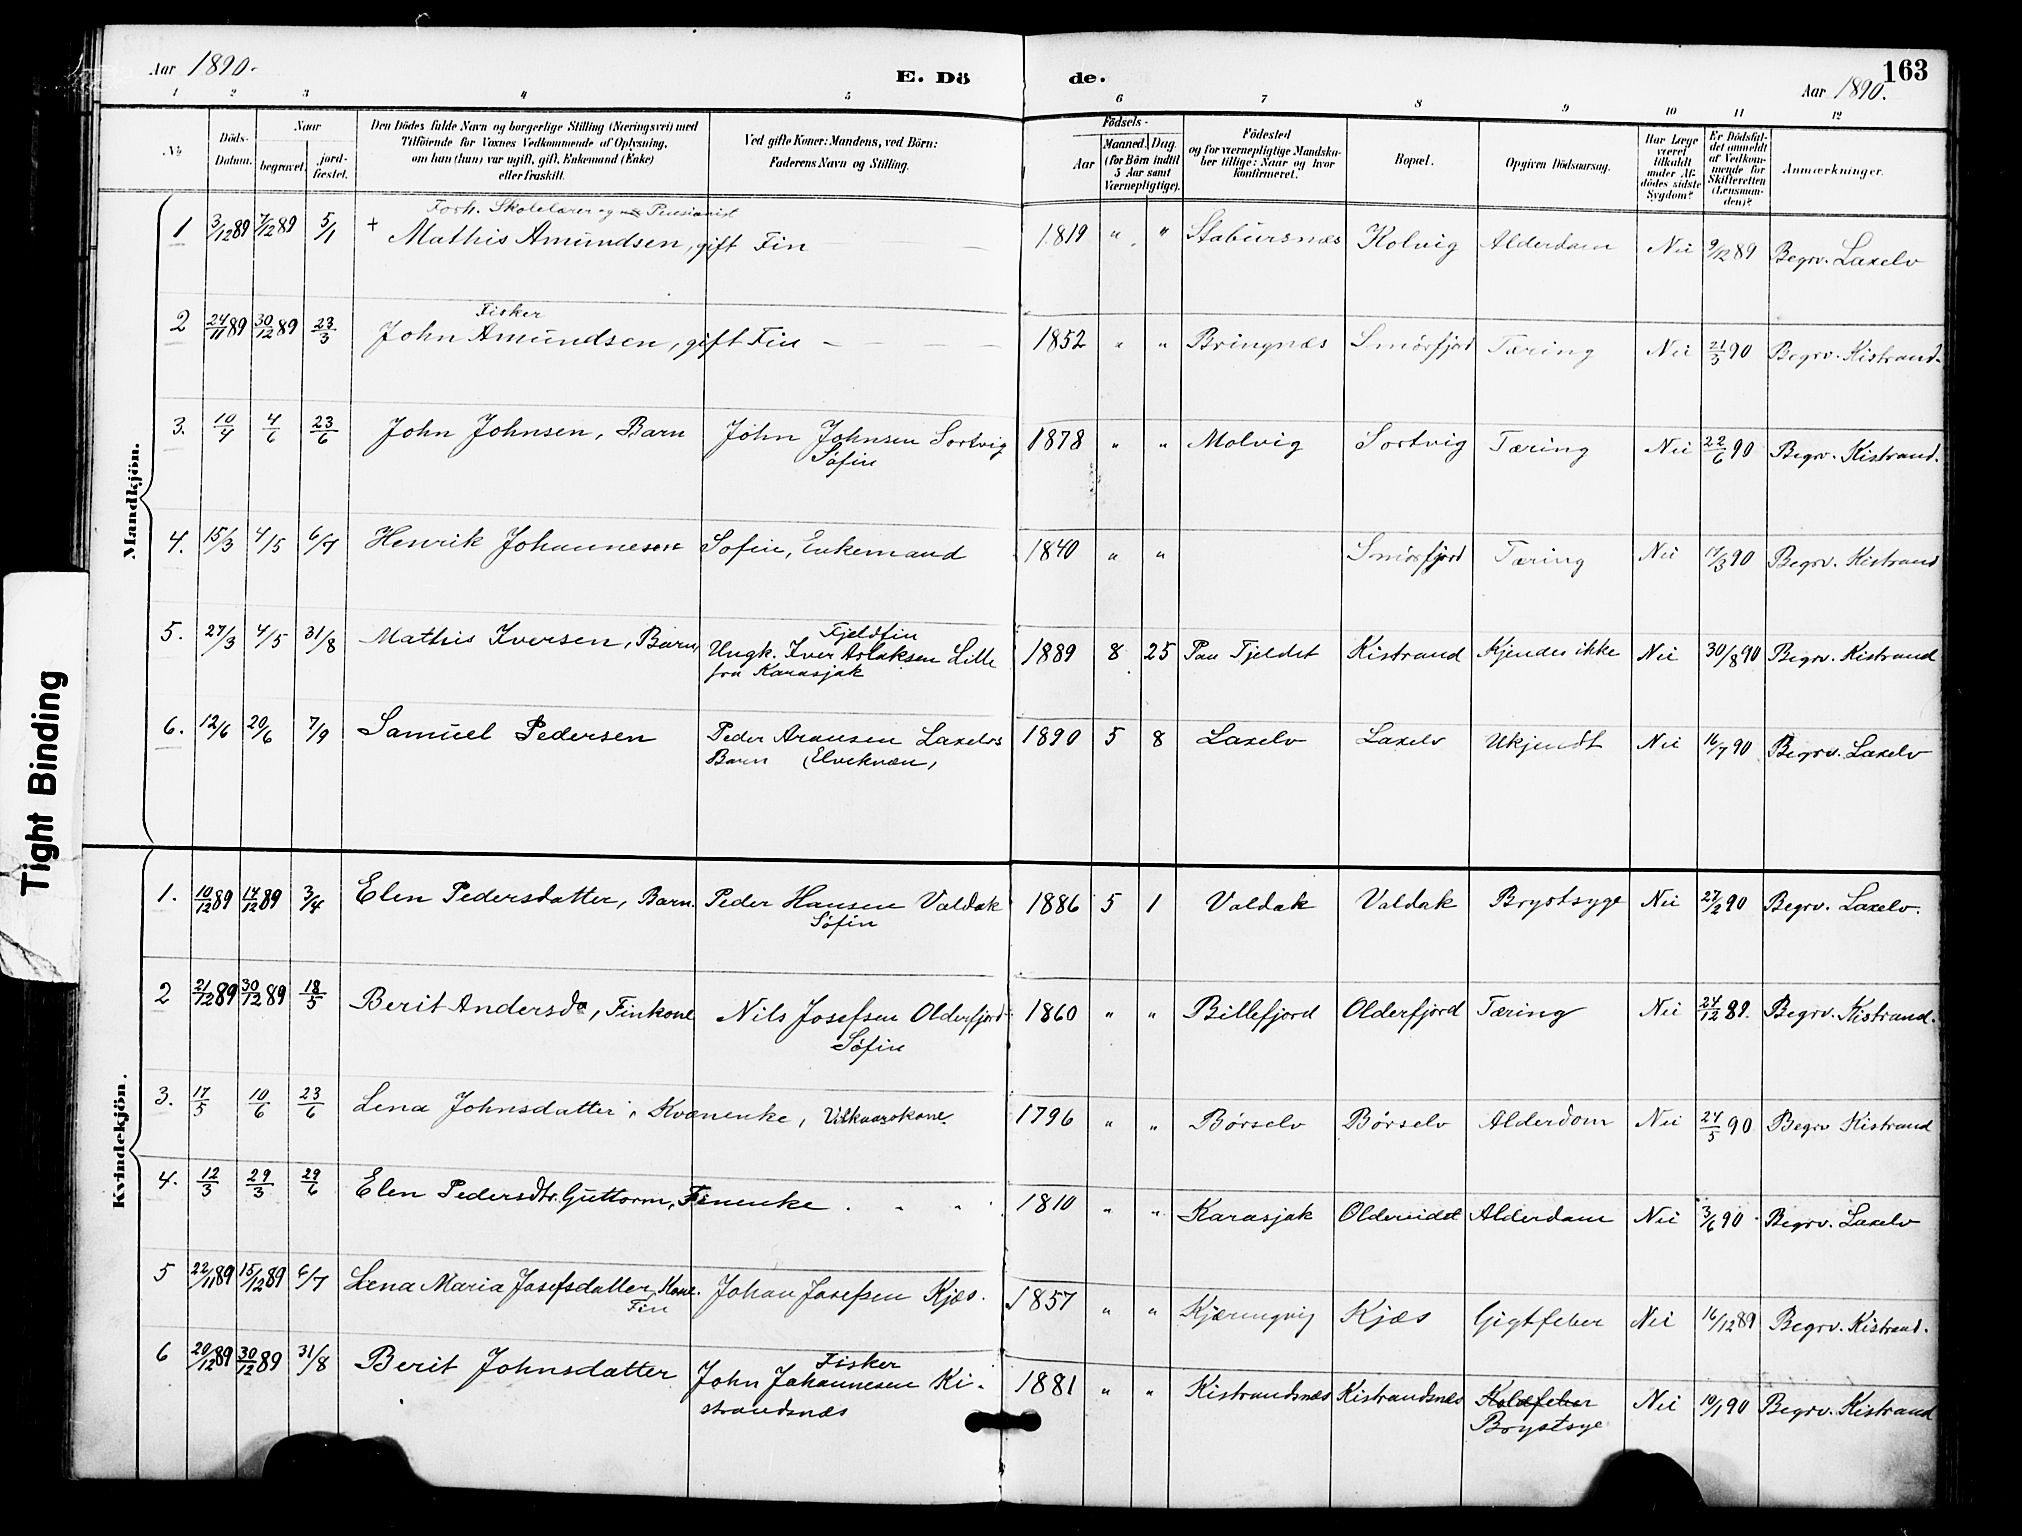 Aar 1890.
E. Dö
de.
Aar 1890.
163
1 2 3 4 5 6 7 8 9 10 11 12
No
Döds-
Datum.
Naar
begravet.
jord-
fæstet.
Den Dödes fulde Navn og borgerlige Stilling (Næringsvei) med
Tilföiende for Voxnes Vedkommende af Oplysning,
om han (hun) var ugift, gift, Enkemand (Enke)
eller fraskilt.
Ved gifte Koner: Mandens, ved Börn:
Faderens Navn og Stilling.
Födsels-
Aar
Maaned. Dag.
(for Börn indtil
5 Aar samt
Værnepligtige).
Födested
og for værnepligtige Mandska-
ber tillige: Naar og hvor
konfirmeret.
Bopæl.
Opgiven Dödsaarsag.
Har Læge
været
tilkaldt
under Af-
dödes sidste
Sygdom?
Er Dödsfal-
det anmeldt
af Vedkom-
mende for
Skifteretten
(Lensman-
den)?
Anmærkninger.
Mandkjön.
Forh. Skolelærer og Pensionist
1 3/12 89 7/12 89 5/1 + Mathis Amundsen, gift Fin 1819 " " Stabursnæs Kolvig Alderdom Nei 9/12 89 Begrv. Laxelv
Fisker
2 24/11 89 30/12 89 23/3 John Amundsen, gift Fin - - - - 1852 " " Bringnæs Smörfjord Tæring Nei 21/3 90 Begrv. Kistrand.
3. 10/4 4/6 23/6 John Johnsen, Barn John Johnsen Sortvig 1878 " " Molvig Sortvig Tæring Nei 22/6 90 Begrv. Kistrand.
Söfin
4. 15/3 4/5 6/7 Henrik Johannesen Sofin, Enkemand 1840 " " Smörfjord Tæring Nei 17/3 90 Begrv. Kistrand
Fjeldfin
5. 27/3 4/5 31/8 Mathis Iversen, Barn, Ungk. Iver Aslaksen Lille 1889 8 25 Paa Fjeldet Kistrand Kjendes ikke Nei 30/8 90 Begrv. Kistrand
fra Karasjok
6. 12/6 20/6 7/9 Samuel Pedersen Peder Aronsen Laxelv 1890 5 8 Laxelv Laxelv Ukjendt Nei 16/7 90 Begrv. Laxelv
Barn (Elvekvæn,
Kvindekjön.
1. 10/12 89 14/12 89 3/4 Elen Pedersdatter, Barn. Peder Hansen Valdak 1886 5 1 Valdak Valdak Brystsyge Nei 27/2 90 Begrv. Laxelv.
Söfin
2 21/12 89 30/12 89 18/5 Berit Andersda, Finkone Nils Josefsen Olderfjord 1860 " " Billefjord Olderfjord Tæring Nei 24/12 89. Begrv. Kistrand.
Söfin
3. 17/5 10/6 23/6 Lena Johnsdatter, Kvænenke, Vilkaarskone. 1796 " " Börselv Börselv Alderdom Nei 24/5 90 Begrv Kistrand
4. 12/3 29/3 29/6 Elen Pedersdtr. Guttorm, Finenke . " " 1810 " " Karasjok Oldereidet Alderdom Nei 3/6 90 Begrv. Laxelv
5 22/11 89 15/12 89 6/7 Lena Maria Josefsdatter, Kone. Johan Josefsen Kjæs. 1857 " " Kjæringvig Kjæs Gigtfeber Nei 16/12 89 Begrv. Kistrand.
Fin
Fisker
6 20/12 89 30/12 89 31/8 Berit Johnsdatter John Johannesen Ki- 1881 " " Kistrandsnæs Kistrandsnæs Koldfeber Nei 10/1 90 Begrv. Kistrand
strandsnæs Brystsyge
Tight Binding